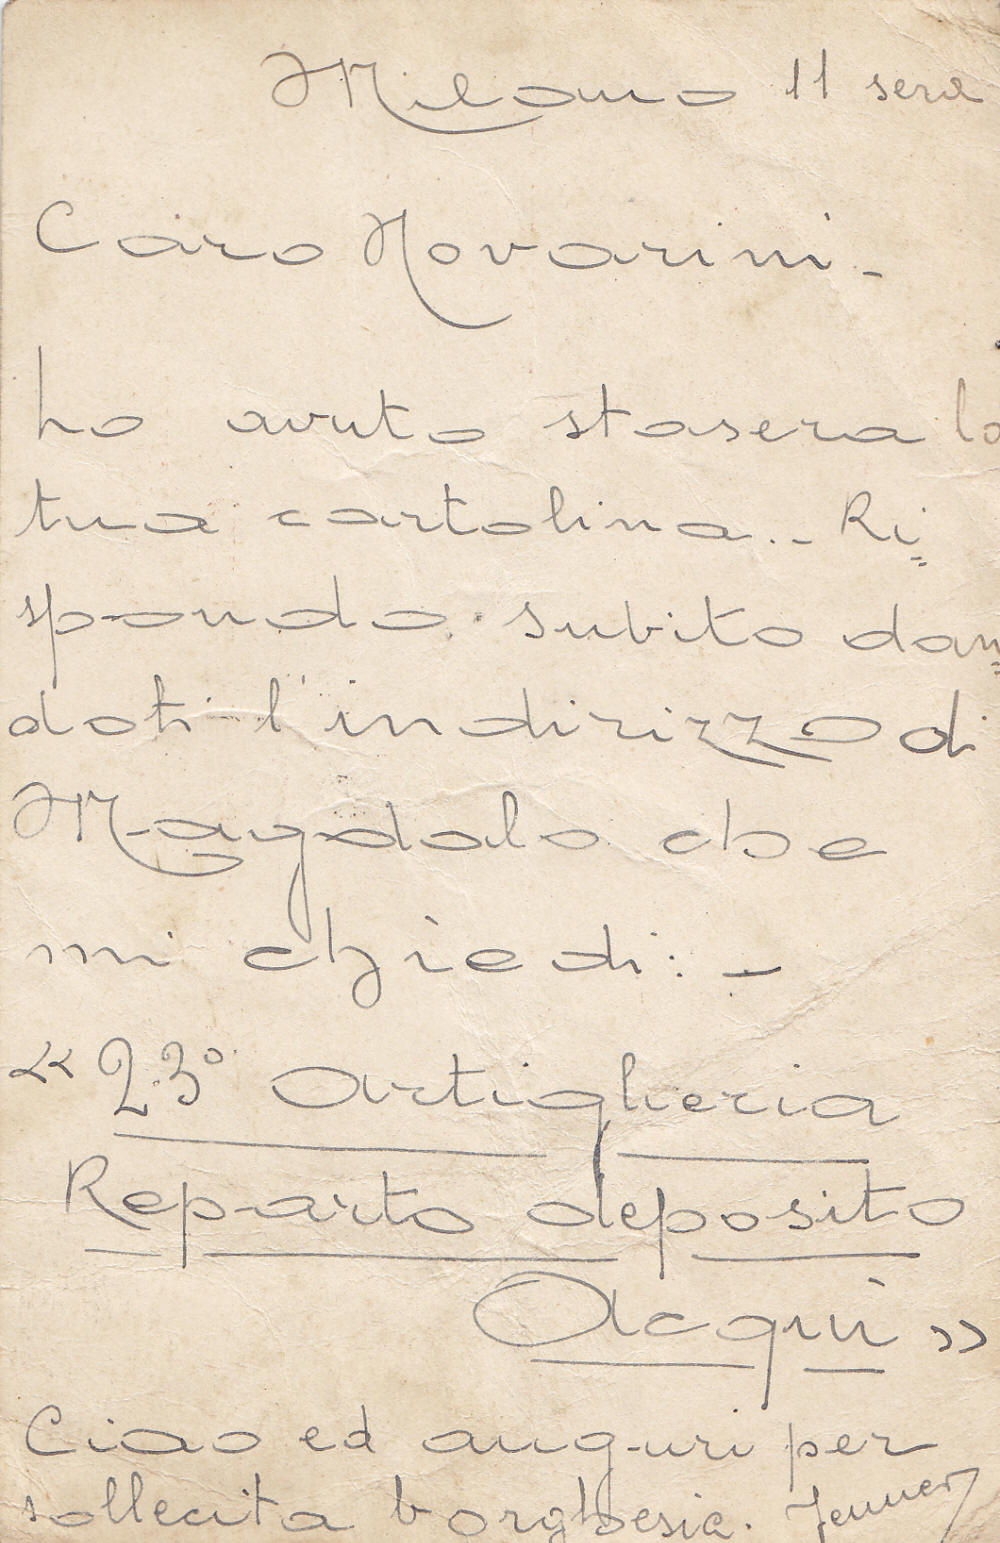 Milano 11 sera
Caro Novarini -
ho avuto stasera la
tua cartolina.. Ri=
spondo subito dan=
doti l'indirizzo di
Magdalo che
mi chiedi: -
«23° Artiglieria
Reparto deposito
Acqui»
Ciao ed auguri per
sollecita borghesia.